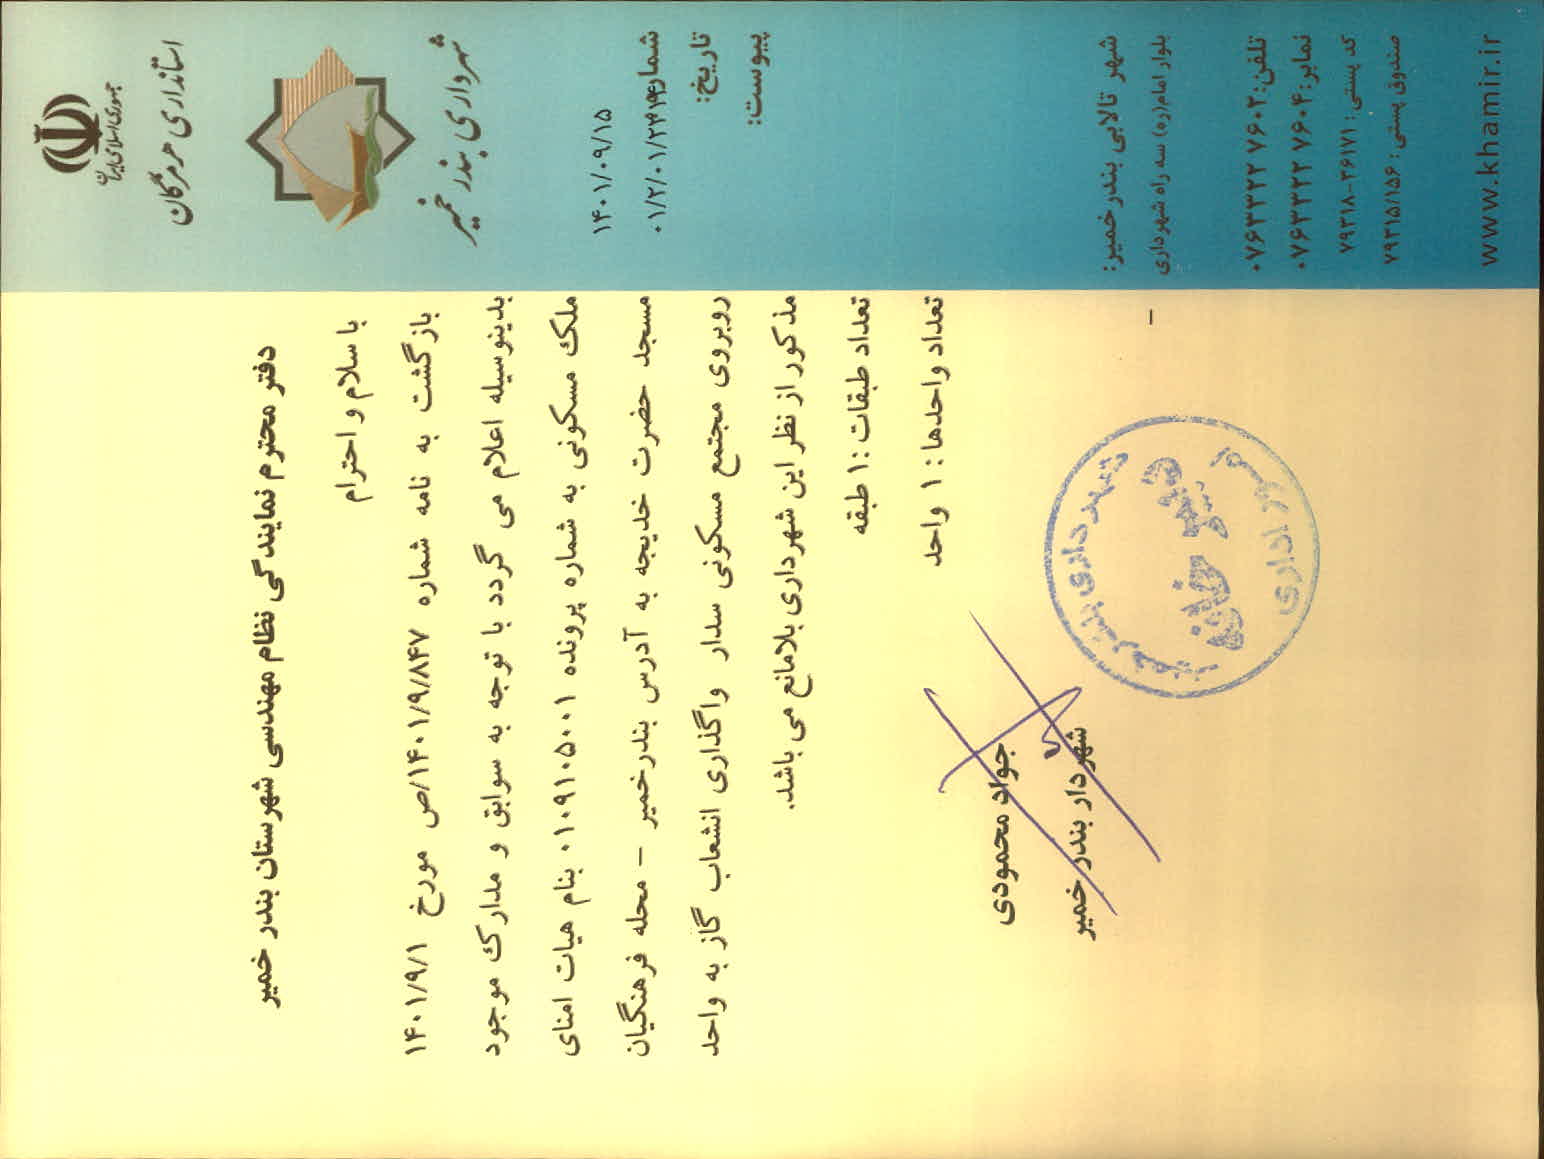 جمهوری اسلامی ایران
استانداری هرمزگان
شهرداری بندر خمیر
۱۴۰۱/۰۹/۱۵
شماره:
تاریخ:
پیوست:
دفتر محترم نمایندگی نظام مهندسی شهرستان بندر خمیر
با سلام و احترام
بازگشت به نامه شماره ۱۴۰۱/۹/۸۴۷/ص مورخ ۱۴۰۱/۹/۱
بدینوسیله اعلام می گردد با توجه به سوابق و مدارک موجود
ملک مسکونی به شماره پرونده ۰۱۰۹۱۰۵۰۰۱ بنام هیات امنای
مسجد حضرت خدیجه به آدرس بندرخمیر – محله فرهنگیان
روبروی مجتمع مسکونی سدار واگذاری انشعاب گاز به واحد
مذکور از نظر این شهرداری بلامانع می باشد.
تعداد طبقات :۱ طبقه
تعداد واحدها : ۱ واحد
جواد محمودی
شهردار بندر خمیر
شهرداری بندرخمیر
دبیرخانه
امور اداری
شهر تالابی بندر خمیر:
بلوار امام(ره) سه راه شهرداری
تلفن: ۰۷۶۳۳۲۲ ۷۶۰۲
نمابر: ۰۷۶۳۳۲۲ ۷۶۰۴
کد پستی: ۷۹۳۱۸-۳۶۱۷۱
صندوق پستی: ۷۹۳۱۵/۱۵۶
www.khamir.ir